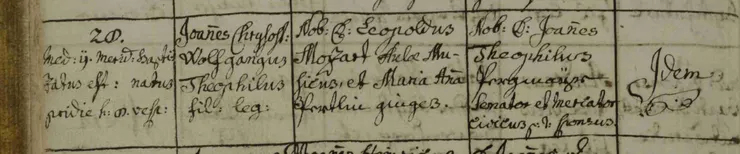 28.
med: 11. merid: baptizatus est: natus
pridie h: 8. vesp:
Joannes Chrysost:
Wolfgangus
Theophilus
fil: leg:
Nob: D: Leopoldus
Mozart Aulae Mu-
sicus, et Maria Anna
Pertlin giuges.
Nob: D: Joannes
Theophilus
Pergmayr
Senator et Mercator
civicus p: t: sponsus
Idem